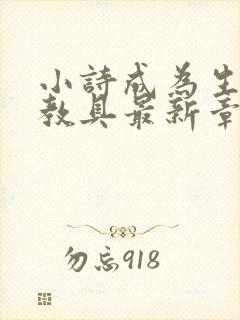 小詩成為生
教具最新章
勿忘918